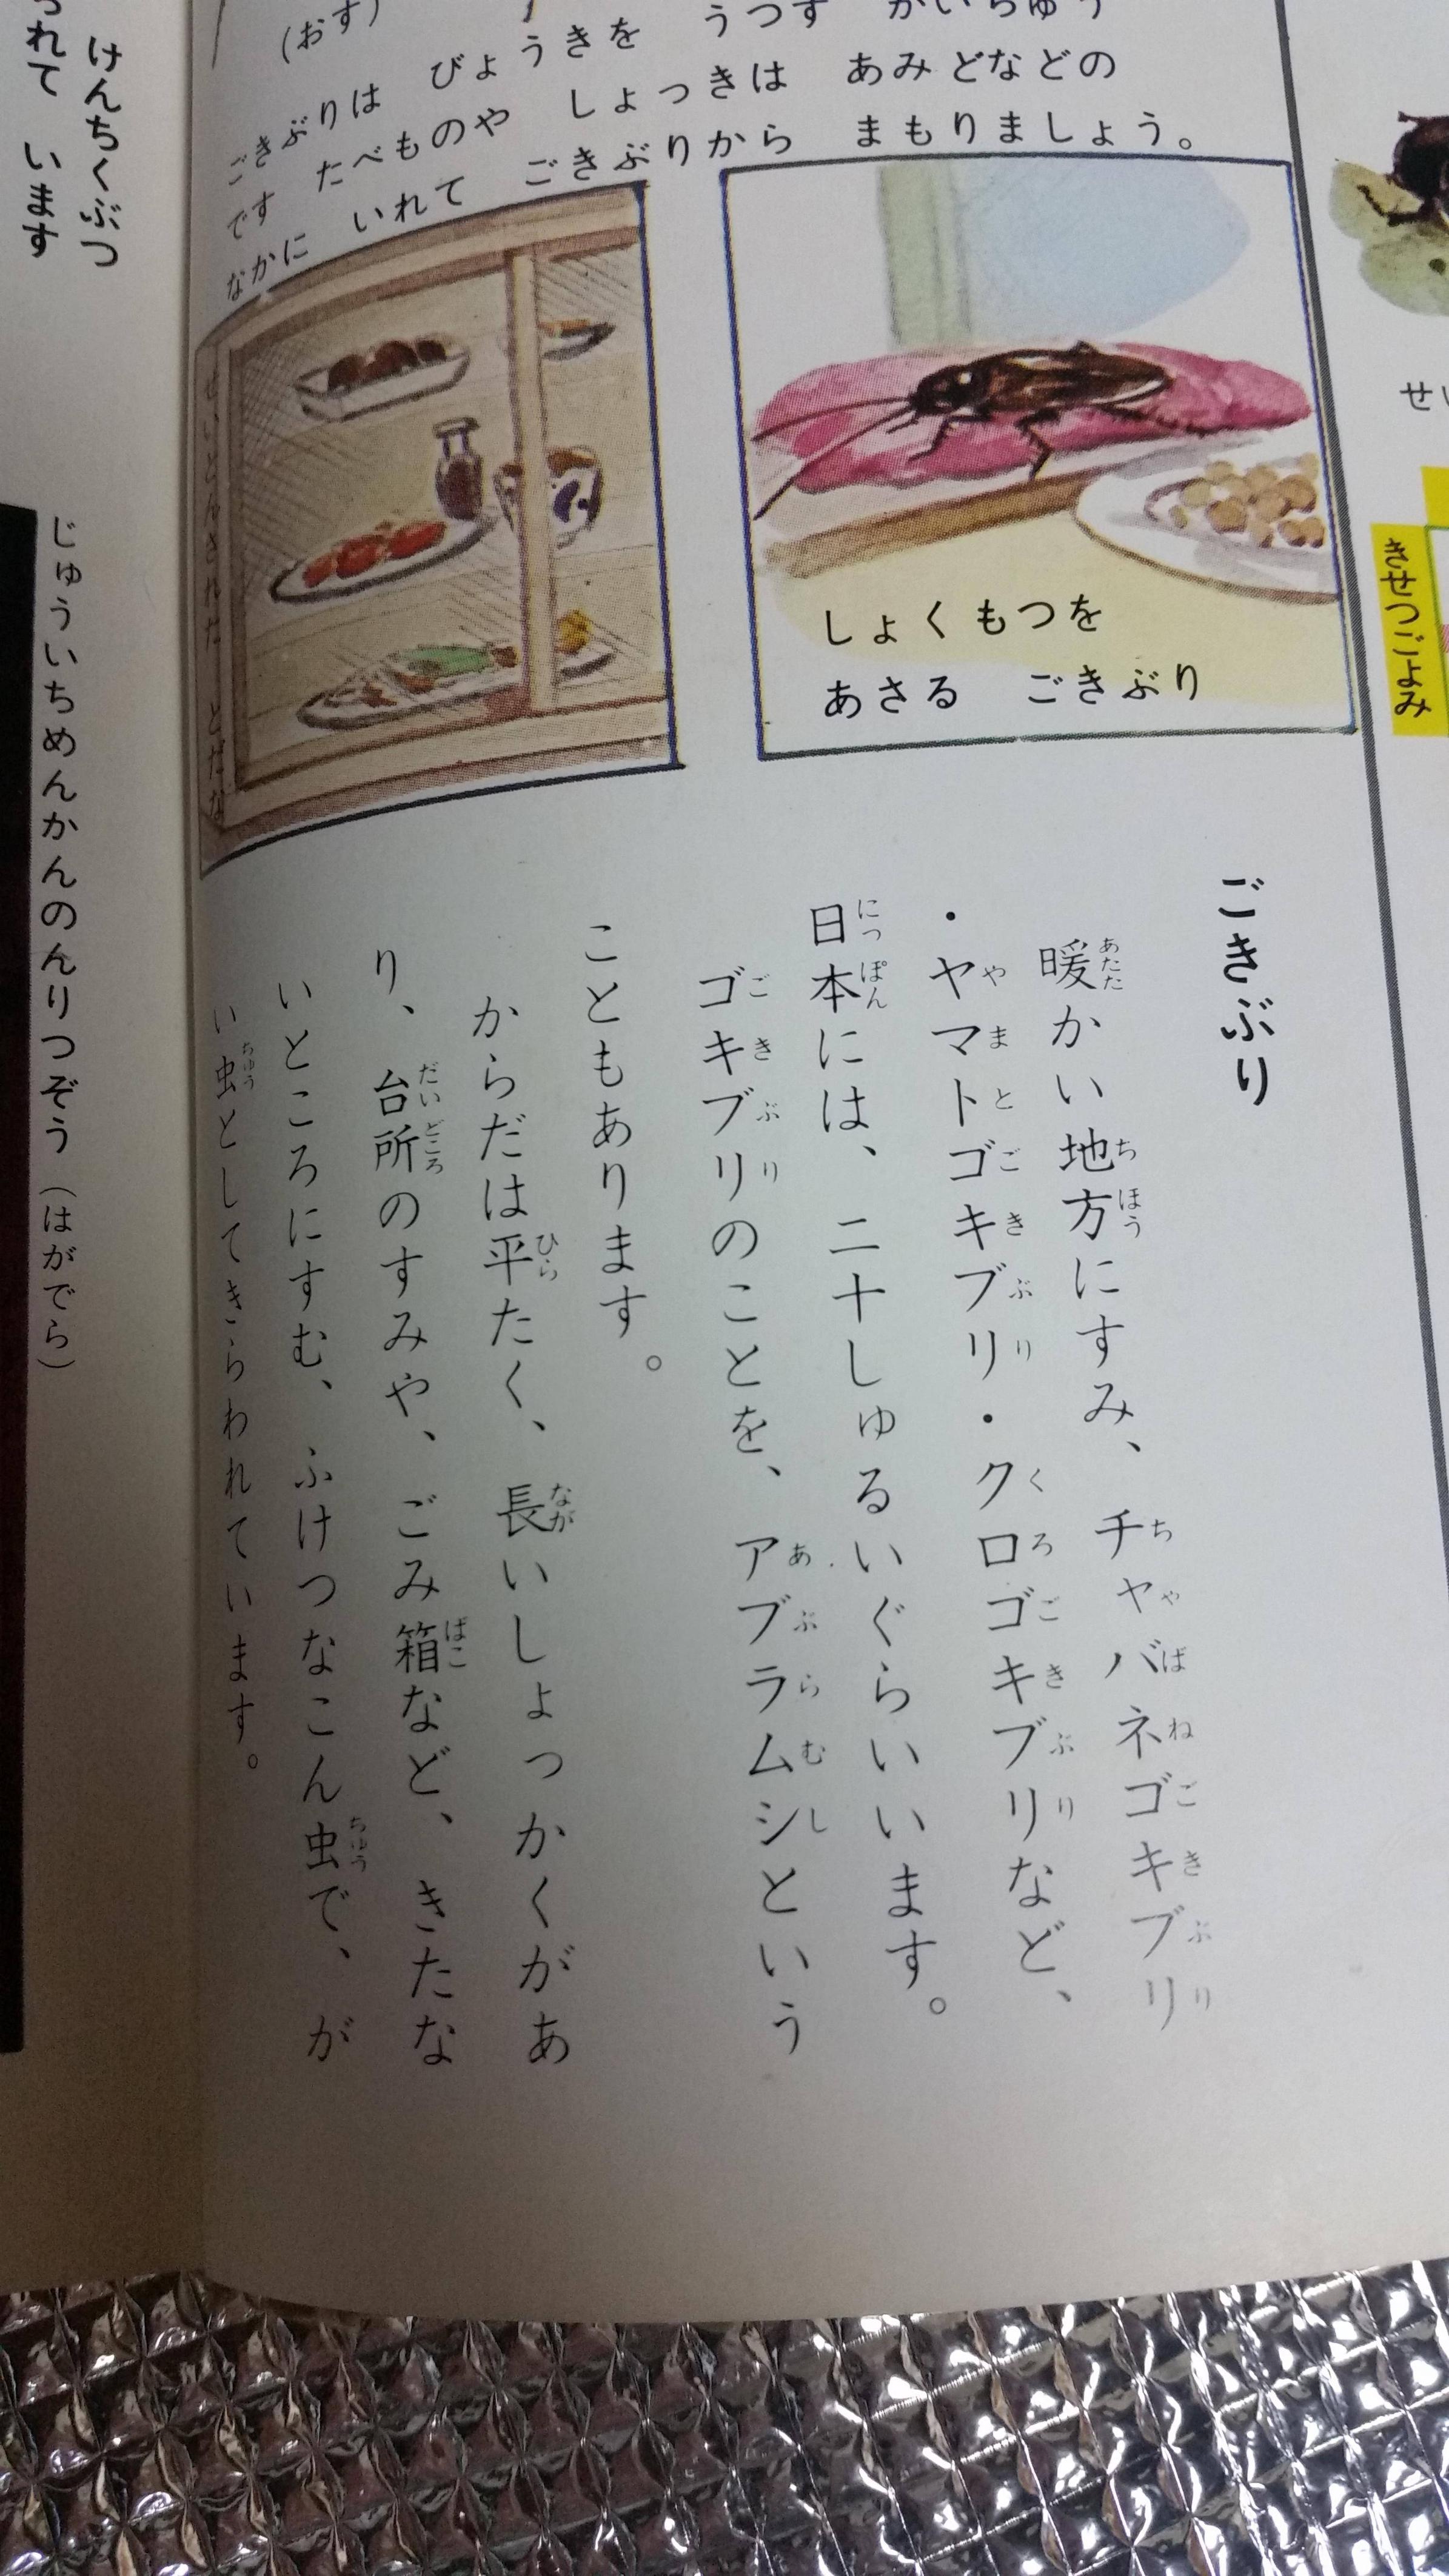 (おす)
ごきぶりは びょうきを うつす がいちゅう
です たべものや しょっきは あみどなどの
なかに いれて ごきぶりから まもりましょう。
しょくもつを
あさる ごきぶり
せいとんされた とだな
きせつごよみ
ごきぶり
暖かい地方にすみ、チャバネゴキブリ
・ヤマトゴキブリ・クロゴキブリなど、
日本には、二十しゅるいぐらいいます。
ゴキブリのことを、アブラムシという
こともあります。
からだは平たく、長いしょっかくがあ
り、台所のすみや、ごみ箱など、きたな
いところにすむ、ふけつなこん虫で、が
い虫としてきらわれています。
けんちくぶつ
られて います
じゅういちめんかんのんりつぞう(はがでら)